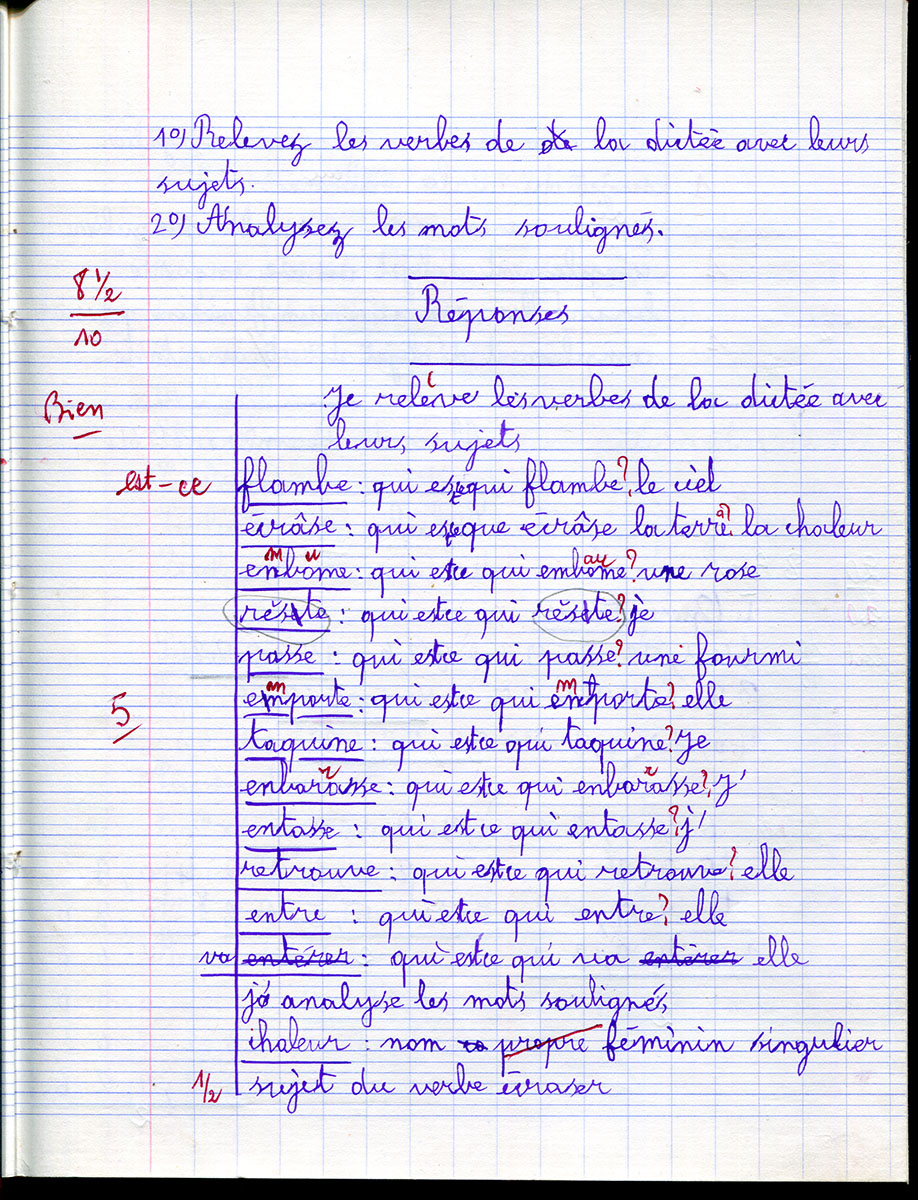 1º) Relevez les verbes de la dictée avec leurs
sujets.
2º) Analysez les mots soulignés.
8 1/2
10
Réponses
Bien
Je relève les verbes de la dictée avec
leurs sujets
est-ce
flambe : qui esce qui flambe? le ciel
écrâse : qui esce que écrâse la terre? la chaleur
embôme : qui estce qui embaume? une rose
réste : qui estce qui réste? je
passe : qui estce qui passe? une fourmi
emporte : qui estce qui emporte? elle
5
taquine : qui estce qui taquine? je
enbarrasse : qui estce qui enbarrasse? j'
entasse : qui estce qui entasse? j'
retrouve : qui estce qui retrouve? elle
entre : qui estce qui entre? elle
va entérer : qui estce qui va entérer elle
jé analyse les mots soulignés
chaleur : nom propre féminin singulier
1/2
sujet du verbe écraser